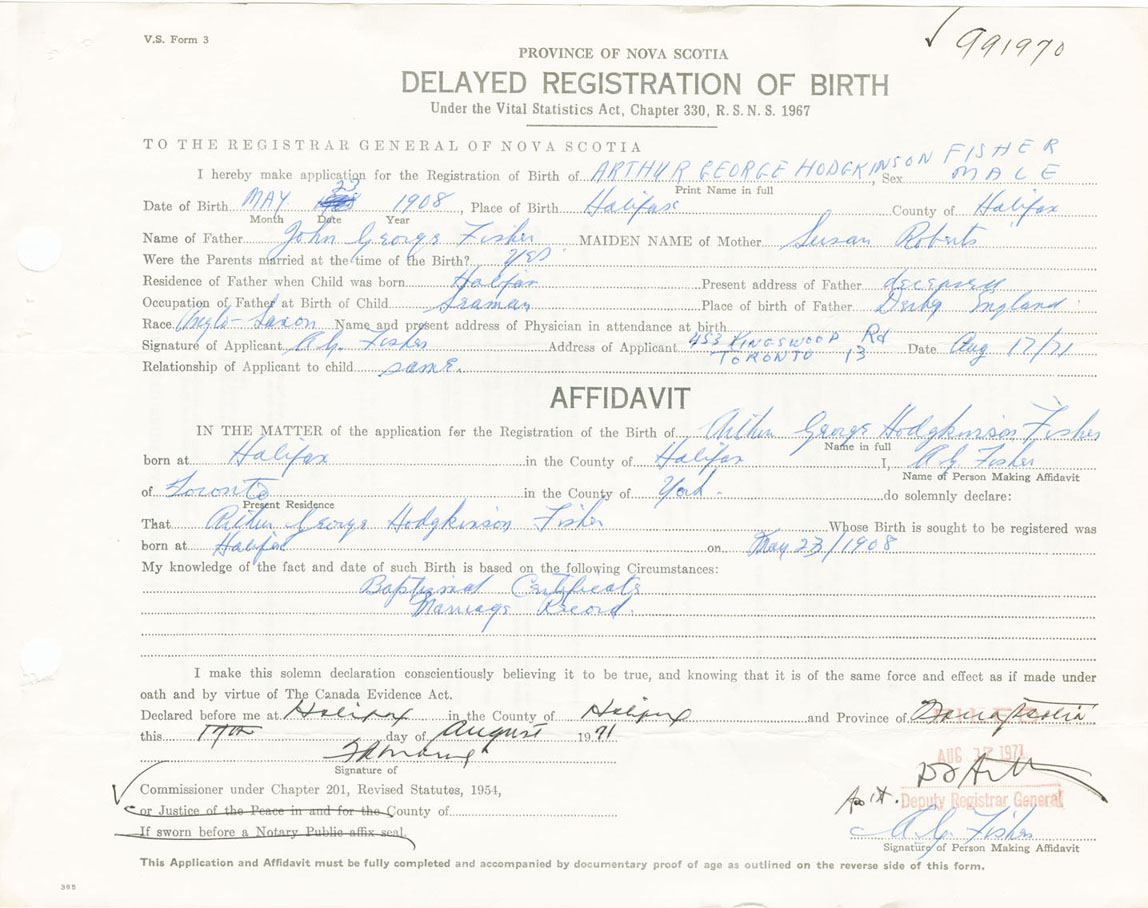 V.S. Form 3
991970
PROVINCE OF NOVA SCOTIA
DELAYED REGISTRATION OF BIRTH
Under the Vital Statistics Act, Chapter 330, R. S. N. S. 1967
TO THE REGISTRAR GENERAL OF NOVA SCOTIA
I hereby make application for the Registration of Birth of ARTHUR GEORGE HODGKINSON FISHER, Sex MALE
Print Name in full
Date of Birth MAY 23 1908, Place of Birth Halifax County of Halifax
Month Date Year
Name of Father John George Fisher MAIDEN NAME of Mother Susan Roberts
Were the Parents married at the time of the Birth? YES
Residence of Father when Child was born Halifax Present address of Father deceased
Occupation of Father at Birth of Child Seaman Place of birth of Father Derby England
Race Anglo-Saxon Name and present address of Physician in attendance at birth
Signature of Applicant A.G. Fisher Address of Applicant 453 KINGSWOOD Rd TORONTO 13 Date Aug 17/71
Relationship of Applicant to child same.
AFFIDAVIT
IN THE MATTER of the application for the Registration of the Birth of Arthur George Hodgkinson Fisher
Name in full
born at Halifax in the County of Halifax I, A.G. Fisher
Name of Person Making Affidavit
of Toronto in the County of York. do solemnly declare:
Present Residence
That Arthur George Hodgkinson Fisher Whose Birth is sought to be registered was
born at Halifax on May 23/1908
My knowledge of the fact and date of such Birth is based on the following Circumstances:
Baptismal Certificate
Marriage Record.
I make this solemn declaration conscientiously believing it to be true, and knowing that it is of the same force and effect as if made under
oath and by virtue of The Canada Evidence Act.
Declared before me at Halifax in the County of Halifax and Province of Nova Scotia
this 17th day of August 1971
AUG 17 1971
Signature of
Commissioner under Chapter 201, Revised Statutes, 1954,
or Justice of the Peace in and for the County of
Deputy Registrar General
If sworn before a Notary Public affix seal.
A.G. Fisher
Signature of Person Making Affidavit
This Application and Affidavit must be fully completed and accompanied by documentary proof of age as outlined on the reverse side of this form.
305